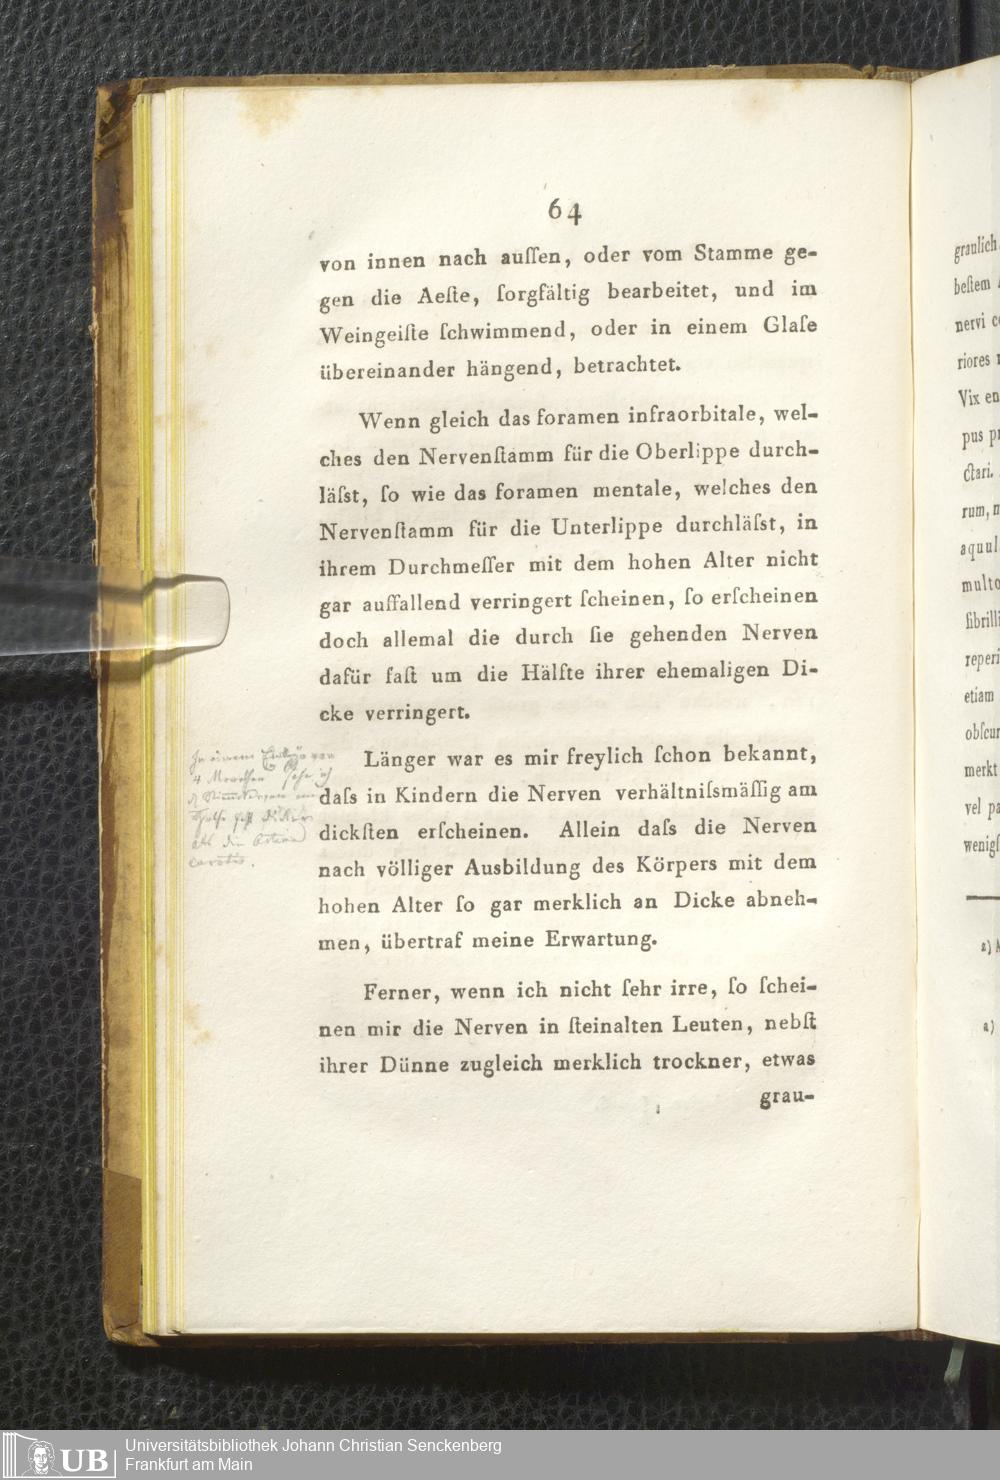 64
von innen nach auſſen, oder vom Stamme ge-
gen die Aeſte, ſorgfältig bearbeitet, und im
Weingeiſte ſchwimmend, oder in einem Glaſe
übereinander hängend, betrachtet.
Wenn gleich das foramen infraorbitale, wel-
ches den Nervenſtamm für die Oberlippe durch-
läſst, ſo wie das foramen mentale, welches den
Nervenſtamm für die Unterlippe durchläſst, in
ihrem Durchmeſſer mit dem hohen Alter nicht
gar auffallend verringert ſcheinen, ſo erſcheinen
doch allemal die durch ſie gehenden Nerven
dafür faſt um die Hälfte ihrer ehemaligen Di-
cke verringert.
Länger war es mir freylich ſchon bekannt,
daſs in Kindern die Nerven verhältniſsmäſſig am
dickſten erſcheinen. Allein daſs die Nerven
nach völliger Ausbildung des Körpers mit dem
hohen Alter ſo gar merklich an Dicke abneh-
men, übertraf meine Erwartung.
Ferner, wenn ich nicht ſehr irre, ſo ſchei-
nen mir die Nerven in ſteinalten Leuten, nebſt
ihrer Dünne zugleich merklich trockner, etwas
grau-
In einem Embryo von
4 Monathen ſehe ich
am
Halſe faſt dicker
als die Arteria
carotis.
graulich
beſtem
nervi
riores
Vix en
pus
ctari.
rum,
aquul
multo
fibrilli
reperi
etiam
obſcur
merkt
vel
wenigſ
a)
a)
UB
Universitätsbibliothek Johann Christian Senckenberg
Frankfurt am Main